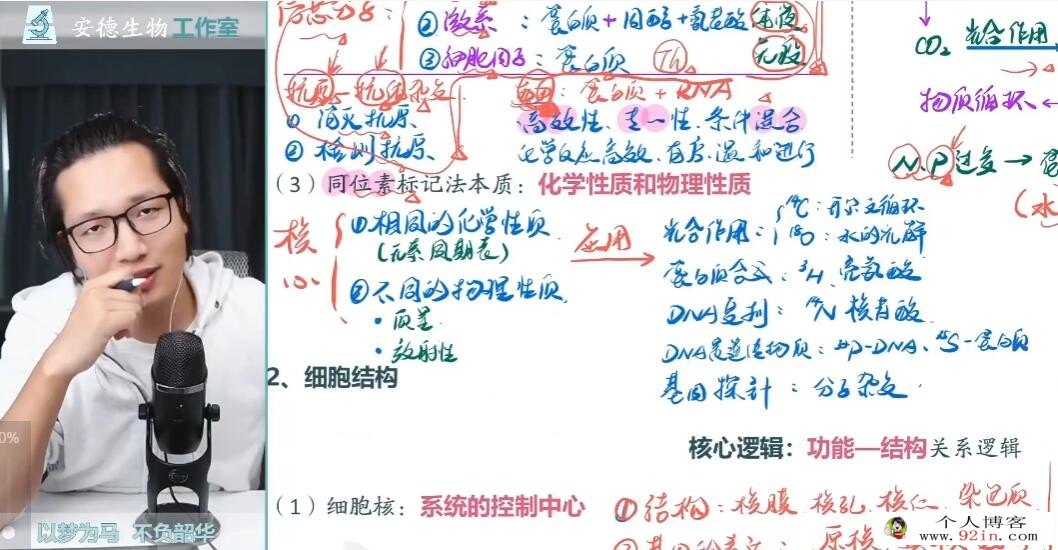 安德生物工作室
信息分子：
②激素：蛋白质+固醇+氨基酸 体液
③细胞因子：蛋白质 Th 免疫
抗原-抗体杂交
蛋白质+RNA
①消灭抗原
高效性、专一性、条件温和
②检测抗原
化学反应高效、有序、温和进行
CO₂ 光合作用
物质循环
N.P过多→
(水
（3）同位素标记法本质：化学性质和物理性质
核心
①相同的化学性质
(元素周期表)
②不同的物理性质
·质量
·放射性
应用
光合作用：
¹⁴C：卡尔文循环
¹⁸O：水的光解
蛋白质合成：³H 亮氨酸
DNA复制：¹⁵N 核苷酸
DNA是遗传物质：³²P-DNA、³⁵S-蛋白质
基因探针：分子杂交
2、细胞结构
核心逻辑：功能—结构关系逻辑
（1）细胞核：系统的控制中心
①结构：核膜 核孔 核仁 染色质
原核
0%
以梦为马 不负韶华
个人博客
www.92in.com